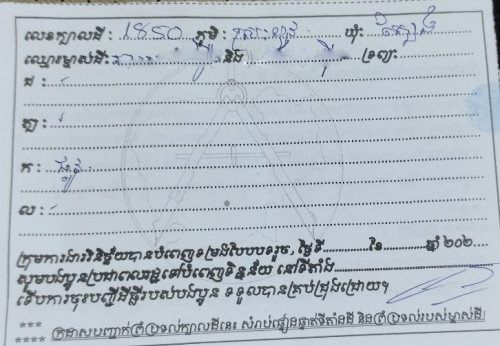 លេខក្បាលដី: 1850 ភូមិ: ឃុំ:
ឈ្មោះម្ចាស់ដី: និង ទ្រព្យ:
ជ:
ត្បូ:
ក: ផ្លូវ
ល:
ក្រុមការងារវិនិច្ឆ័យបានបំពេញទម្រង់បែបបទរួច, ថ្ងៃទី..............ខែ..............ឆ្នាំ ២០២....
សូមបងប្អូនប្រជាពលរដ្ឋទៅបំពេញទិន្នន័យ នៅទីតាំង
ទើបការចុះបញ្ជីដីធ្លីរបស់បងប្អូន ទទួលបានគ្រប់ជ្រុងជ្រោយ។
***
**** ក្រដាសបញ្ជាក់ព្រំប្រទល់ក្បាលដីនេះ សំរាប់ផ្ទៀងផ្ទាត់ទីតាំងដី និងព្រំប្រទល់របស់ម្ចាស់ដី